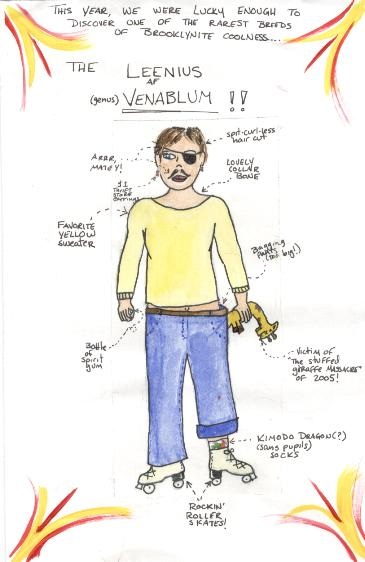 THIS YEAR, WE WERE LUCKY ENOUGH TO
DISCOVER ONE OF THE RAREST BREEDS
OF BROOKLYNITE COOLNESS....
THE LEENIUS
AF
(genus) VENABLUM !!
spit-curl-less
hair cut
ARRR,
MATEY!
LOVELY
COLLAR
BONE
$1
THRIFT
STORE
EARRINGS
FAVORITE
YELLOW
SWEATER
Bagging
Pants
(too big!)
Bottle
of
spirit
gum
VICTIM OF
THE STUFFED
GIRAFFE MASSACRE
OF 2005!
KIMODO DRAGON(?)
(sans pupils)
SOCKS
ROCKIN'
ROLLER
SKATES!